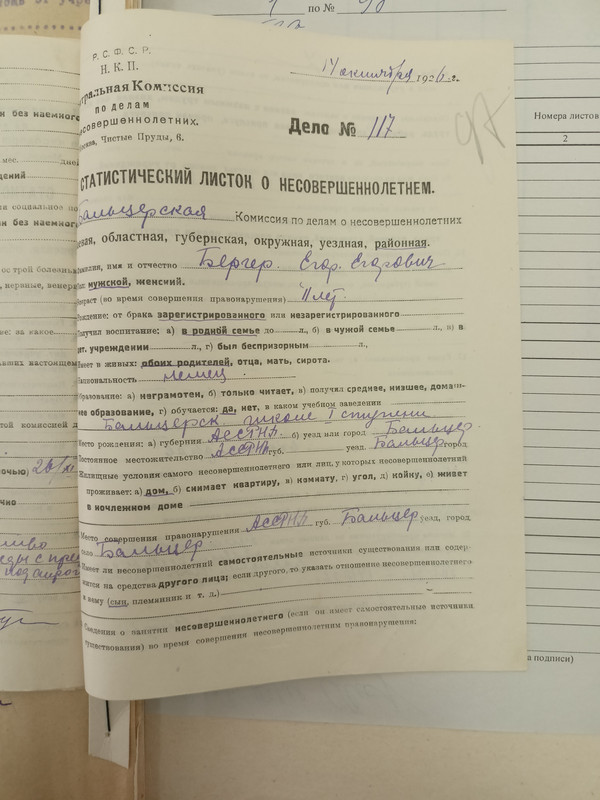 по №
Номера листов
2
Р. С. Ф. С. Р.
Н. К. П.
14 октября 1926 г.
тральная Комиссия
по делам
несовершеннолетних.
Чистые Пруды, 6.
Дело № 117
97
СТАТИСТИЧЕСКИЙ ЛИСТОК О НЕСОВЕРШЕННОЛЕТНЕМ.
Бальцерская Комиссия по делам о несовершеннолетних
евая, областная, губернская, окружная, уездная, районная.
имя и отчество Бергер Егор Егорович
мужской, женский.
(во время совершения правонарушения) 11 лет
Рождение: от брака зарегистрированного или незарегистрированного
Получил воспитание: а) в родной семье до л., б) в чужой семье л., в) в
дет. учреждении л., г) был беспризорным л.,
Имеет в живых: обоих родителей, отца, мать, сирота.
Национальность немец
Образование: а) неграмотен, б) только читает, в) получил среднее, низшее, домаш-
нее образование, г) обучается: да, нет, в каком учебном заведении
Бальцерск. школе I ступени
Место рождения: а) губерния АССРНП б) уезд или город Бальцер
Постоянное местожительство АССРНП губ. уезд. Бальцер город
Жилищные условия самого несовершеннолетнего или лиц, у которых несовершеннолетний
проживает: а) дом, б) снимает квартиру, в) комнату, г) угол, д) койку, е) живет
в ночлежном доме
Место совершения правонарушения АССРНП губ. Бальцер уезд, город
Бальцер
Имеет ли несовершеннолетний самостоятельные источники существования или содер-
жится на средства другого лица; если другого, то указать отношение несовершеннолетнего
к нему (сын, племянник и т. д.)
Сведения о занятии несовершеннолетнего (если он имеет самостоятельные источники
существования) во время совершения несовершеннолетним правонарушения:
а подписи)